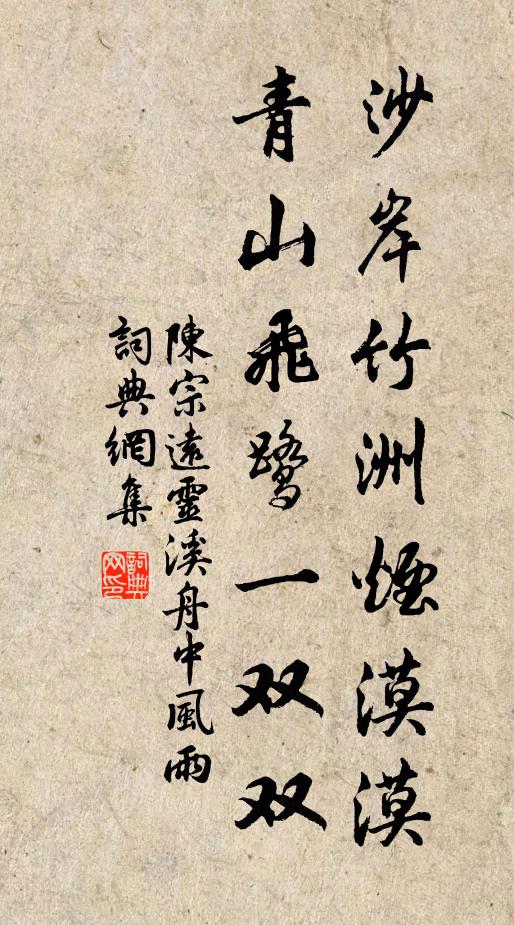 沙岸竹洲煙漠漠
青山飛鷺一双双
陳宗遠靈溪舟中風雨
詞典網集
詞典网印